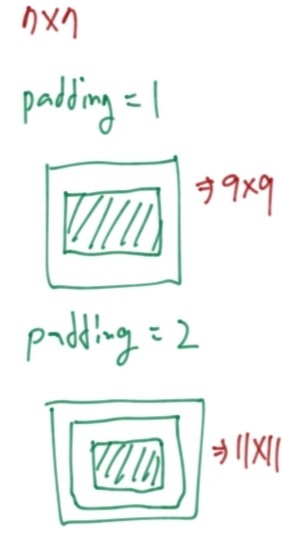 7×7
padding = 1
⇒ 9×9
padding = 2
⇒ 11×11